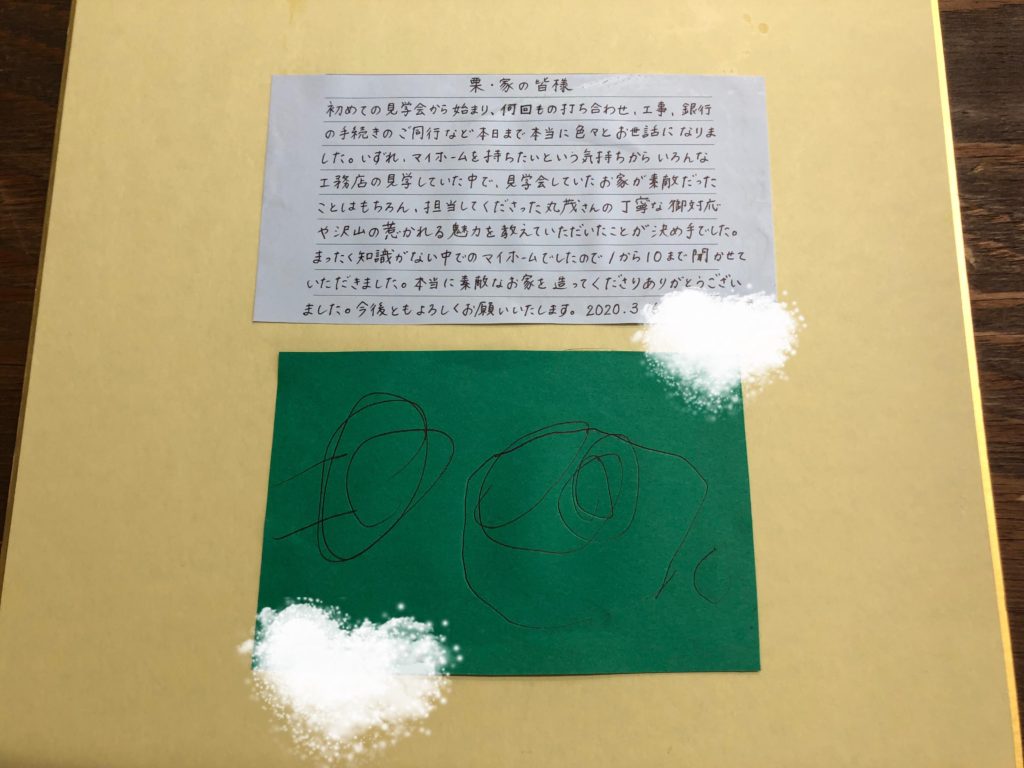 栗・家の皆様
初めての見学会から始まり、何回もの打ち合わせ、工事、銀行
の手続きのご同行など本日まで本当に色々とお世話になりま
した。いずれ、マイホームを持ちたいという気持ちからいろんな
工務店の見学していた中で、見学会していたお家が素敵だった
ことはもちろん、担当してくださった丸茂さんの丁寧な御対応
や沢山の惹かれる魅力を教えていただいたことが決め手でした。
まったく知識がない中でのマイホームでしたので1から10まで聞かせて
いただきました。本当に素敵なお家を造ってくださりありがとうござい
ました。今後ともよろしくお願いいたします。2020.3